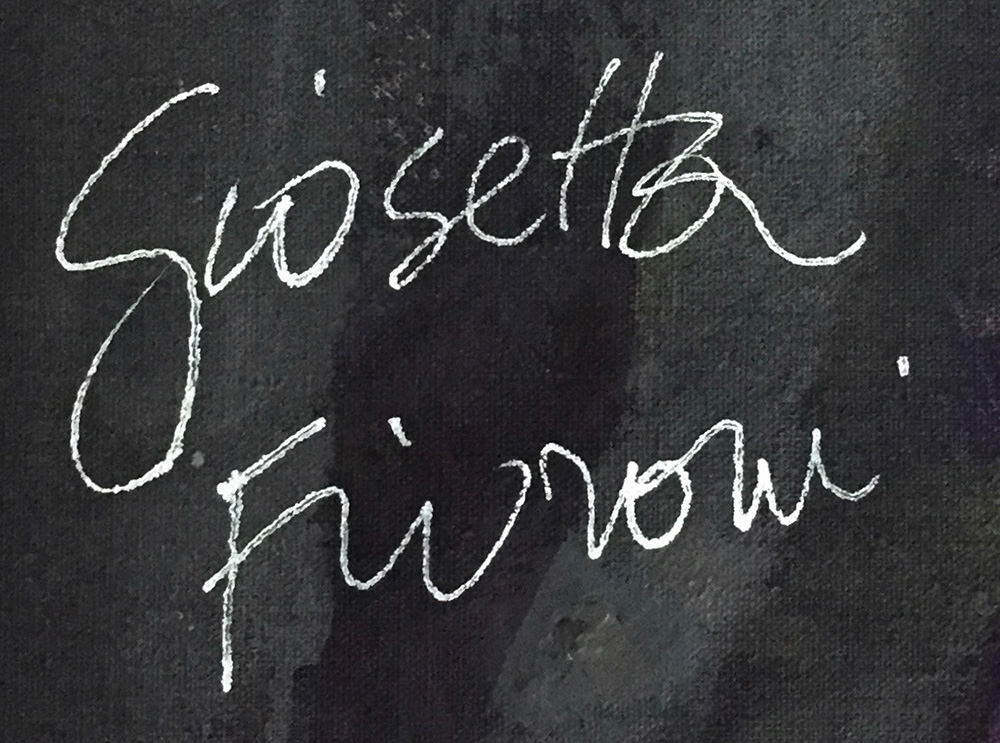 Giosetta
Fioroni